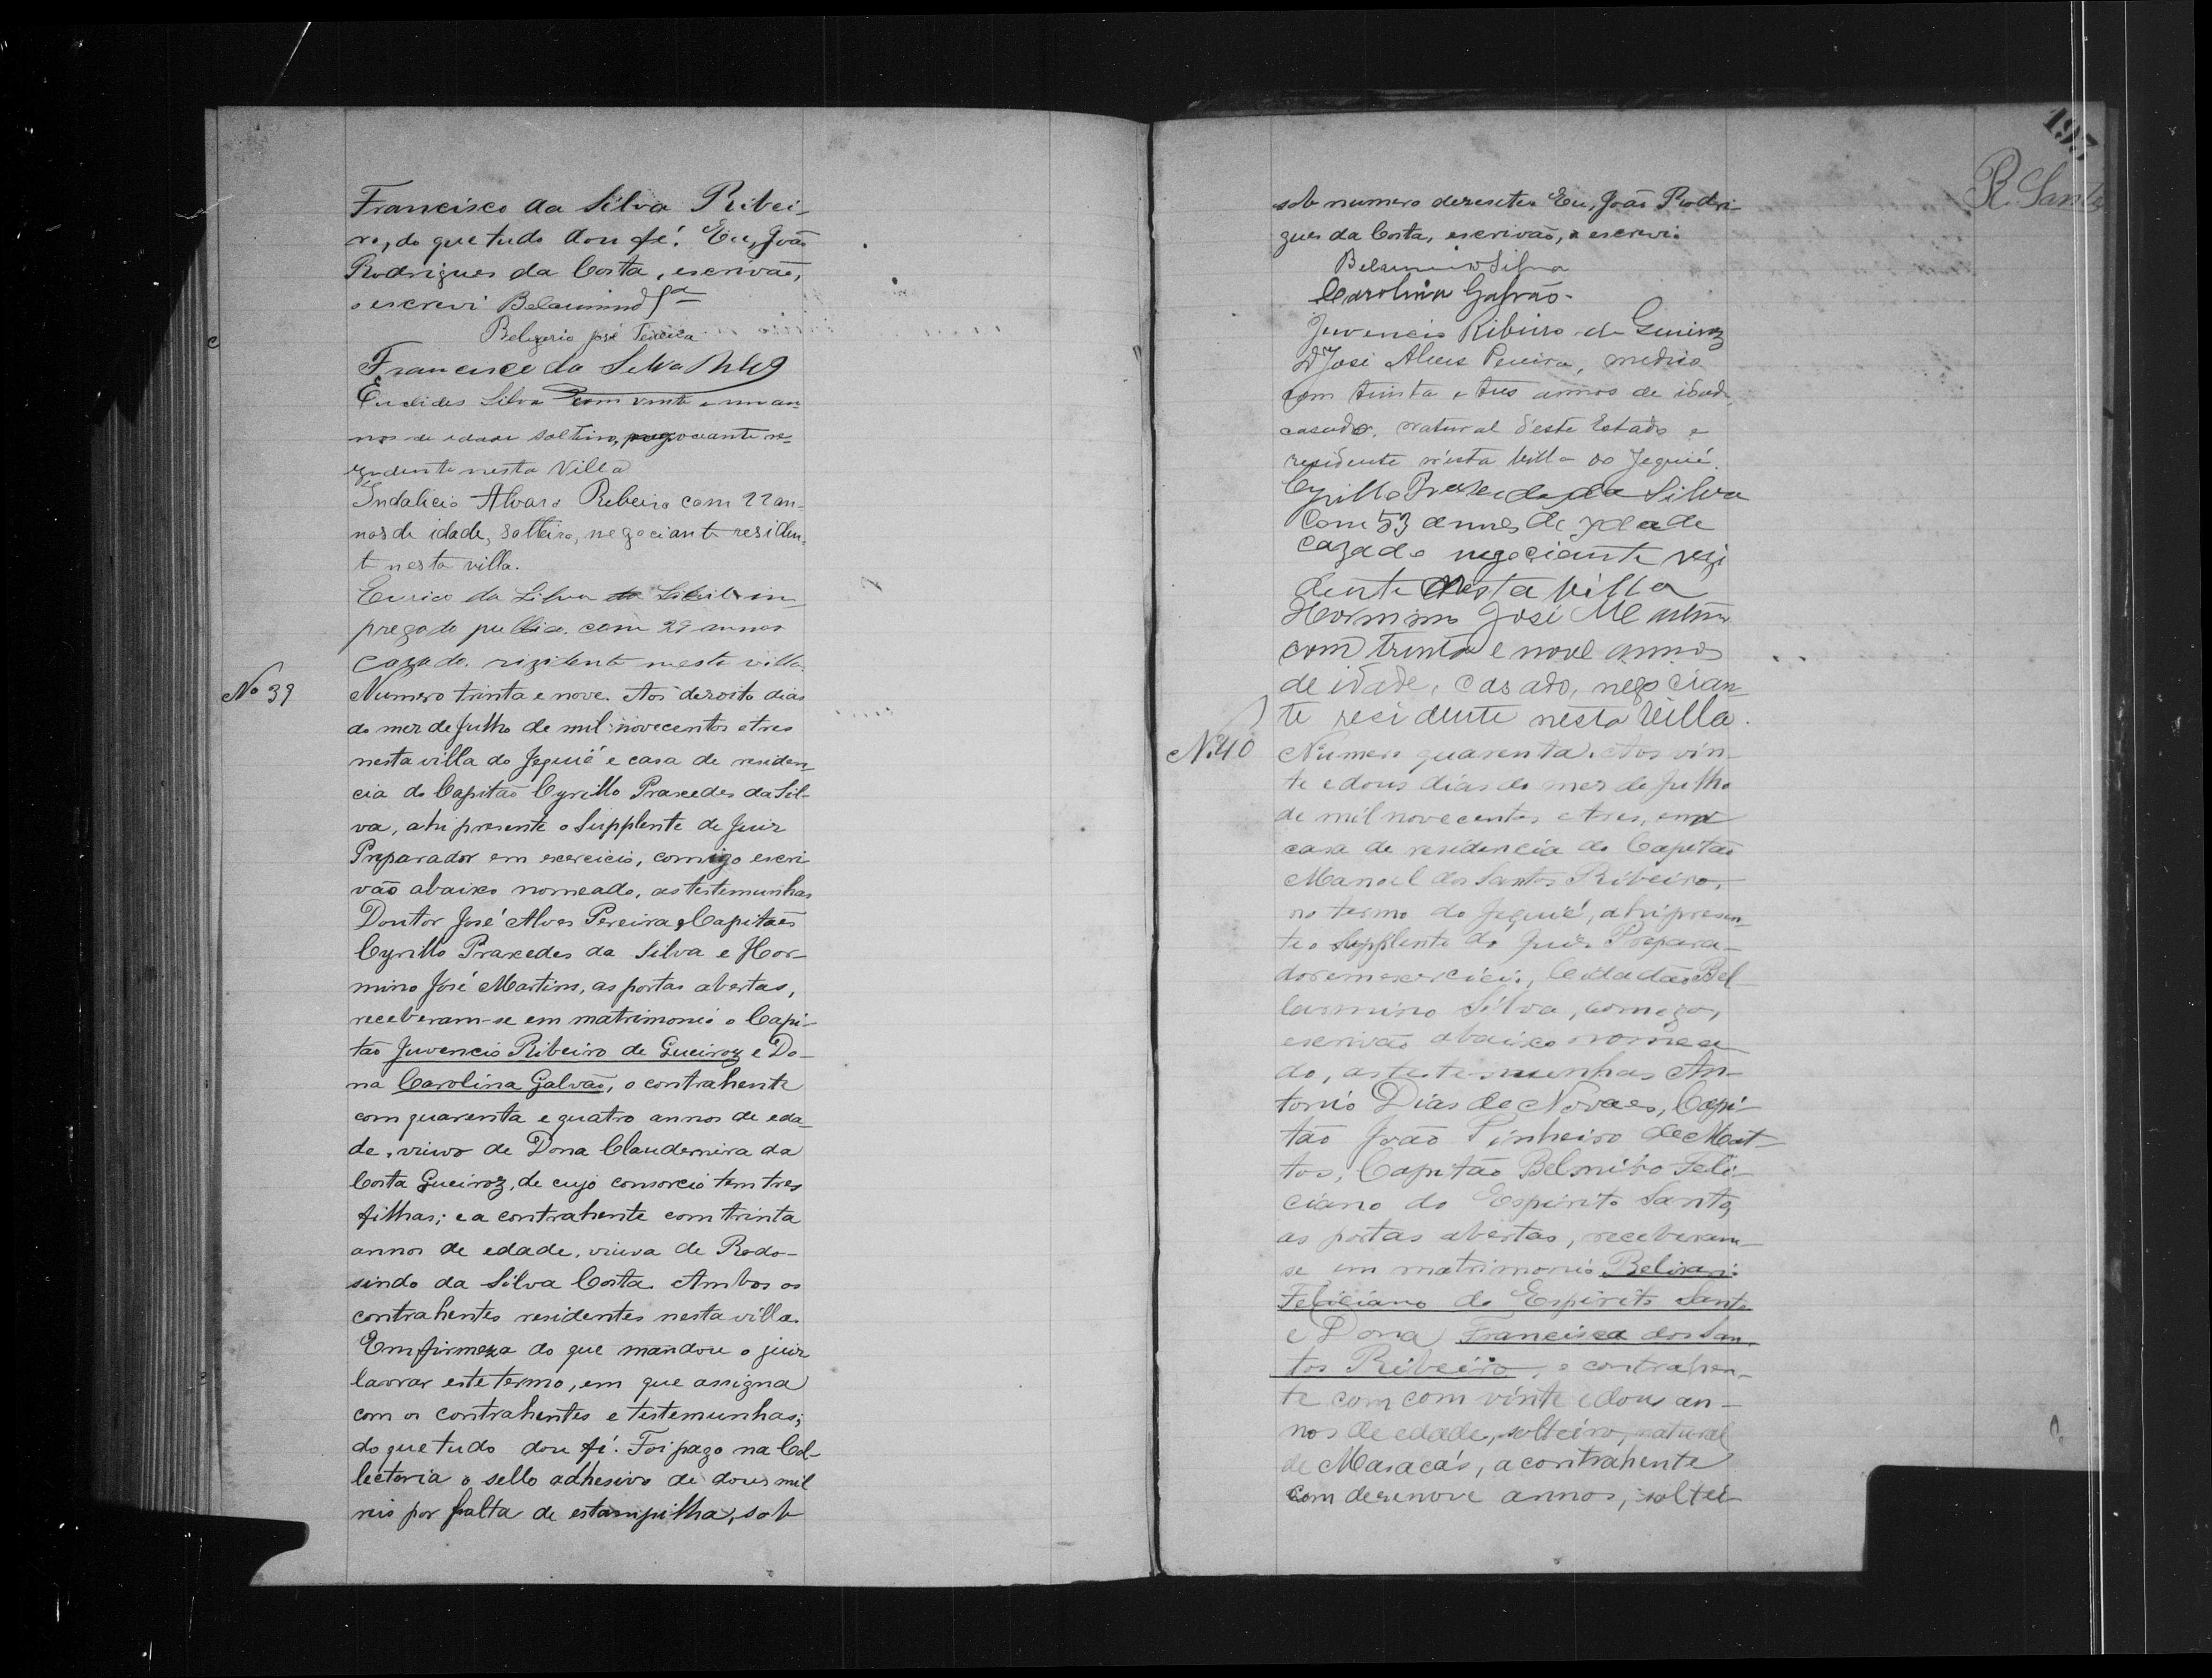 Francisco da Silva Ribei-
ro, do que tudo dou fé. Eu, João
Rodrigues da Costa, escrivão,
o escrevi Belarmino Sª
Beligerio José Teixeira
Francisco da Silva
Euclides Silva com vinte e um an-
nos de edade solteiro, negociante re-
zidente nesta Villa
Indalicio Alvaro Ribeiro com 22 an-
nos de idade, solteiro, negociante residen-
te nesta villa.
Eurico da Silva im-
pregado publico. com 29 annos
cazado. rizidente nesta villa.
No 39
Numero trinta e nove. Aos dezoito dias
do mez de Julho de mil novecentos e tres
nesta villa do Jequié e casa de residen-
cia do Capitão Cyrillo Praxedes da Sil-
va, ahi presente o Supplente de Juiz
Preparador em exercicio, comigo escri-
vão abaixo nomeado, as testemunhas
Doutor José Alves Pereira, Capitães
Cyrillo Praxedes da Silva e Hor-
mino José Martins, as portas abertas,
receberam-se em matrimonio o Capi-
tão Juvencio Ribeiro de Gueiroz e Do-
na Carolina Galvão, o contrahente
com quarenta e quatro annos de eda-
de, viuvo de Dona Claudemira da
Costa Gueiroz, de cujo consorcio tem tres
filhas; e a contrahente com trinta
annos de edade, viuva de Rodo-
sindo da Silva Costa. Ambos os
contrahentes residentes nesta villa.
Em firmeza do que mandou o juiz
lavrar este termo, em que assigna
com os contrahentes e testemunhas;
do que tudo dou fé. Foi pago na Col-
lectoria o sello adhesivo de dous mil
reis por falta de estampilha, sob
197
R. Santo
sob numero dezesete. Eu, João Rodri-
gues da Costa, escrivão, o escrevi.
Belarmino Silva
Carolina Galvão.
Juvencio Ribeiro de Gueiroz
Dr José Alves Pereira, medico
com trinta e tres annos de idade,
casado, natural d'este Estado e
residente n'esta villa do Jequié.
Cyrillo Praxedes da Silva
Com 53 annos de ydade
cazado negociante rezi
dente nesta villa
Hormino José Martins
com trinta e nove annos
de idade, casado, negocian-
te residente nesta Villa.
No 40
Numero quarenta. Aos vin-
te e dous dias do mez de Julho
de mil novecentos e tres, em
casa de residencia do Capitão
Manoel dos Santos Ribeiro,
no termo do Jequié, ahi presen-
te o Supplente do Juiz Prepara-
dor em exercicio, Cidadão Bel-
larmino Silva, comigo,
escrivão abaixo nomea
do, as testemunhas An-
tonio Dias de Novaes, Capi-
tão João Pinheiro de Mat-
tos, Capitão Belmiro Feli-
ciano do Espirito Santo,
as portas abertas, receberam-
se em matrimonio Belizario
Feliciano do Espirito Santo
e Dona Francisca dos San-
tos Ribeiro, o contrahen-
te com com vinte e dous an-
nos de edade, solteiro, natural
de Maracás, a contrahente
com dezenove annos, soltei-